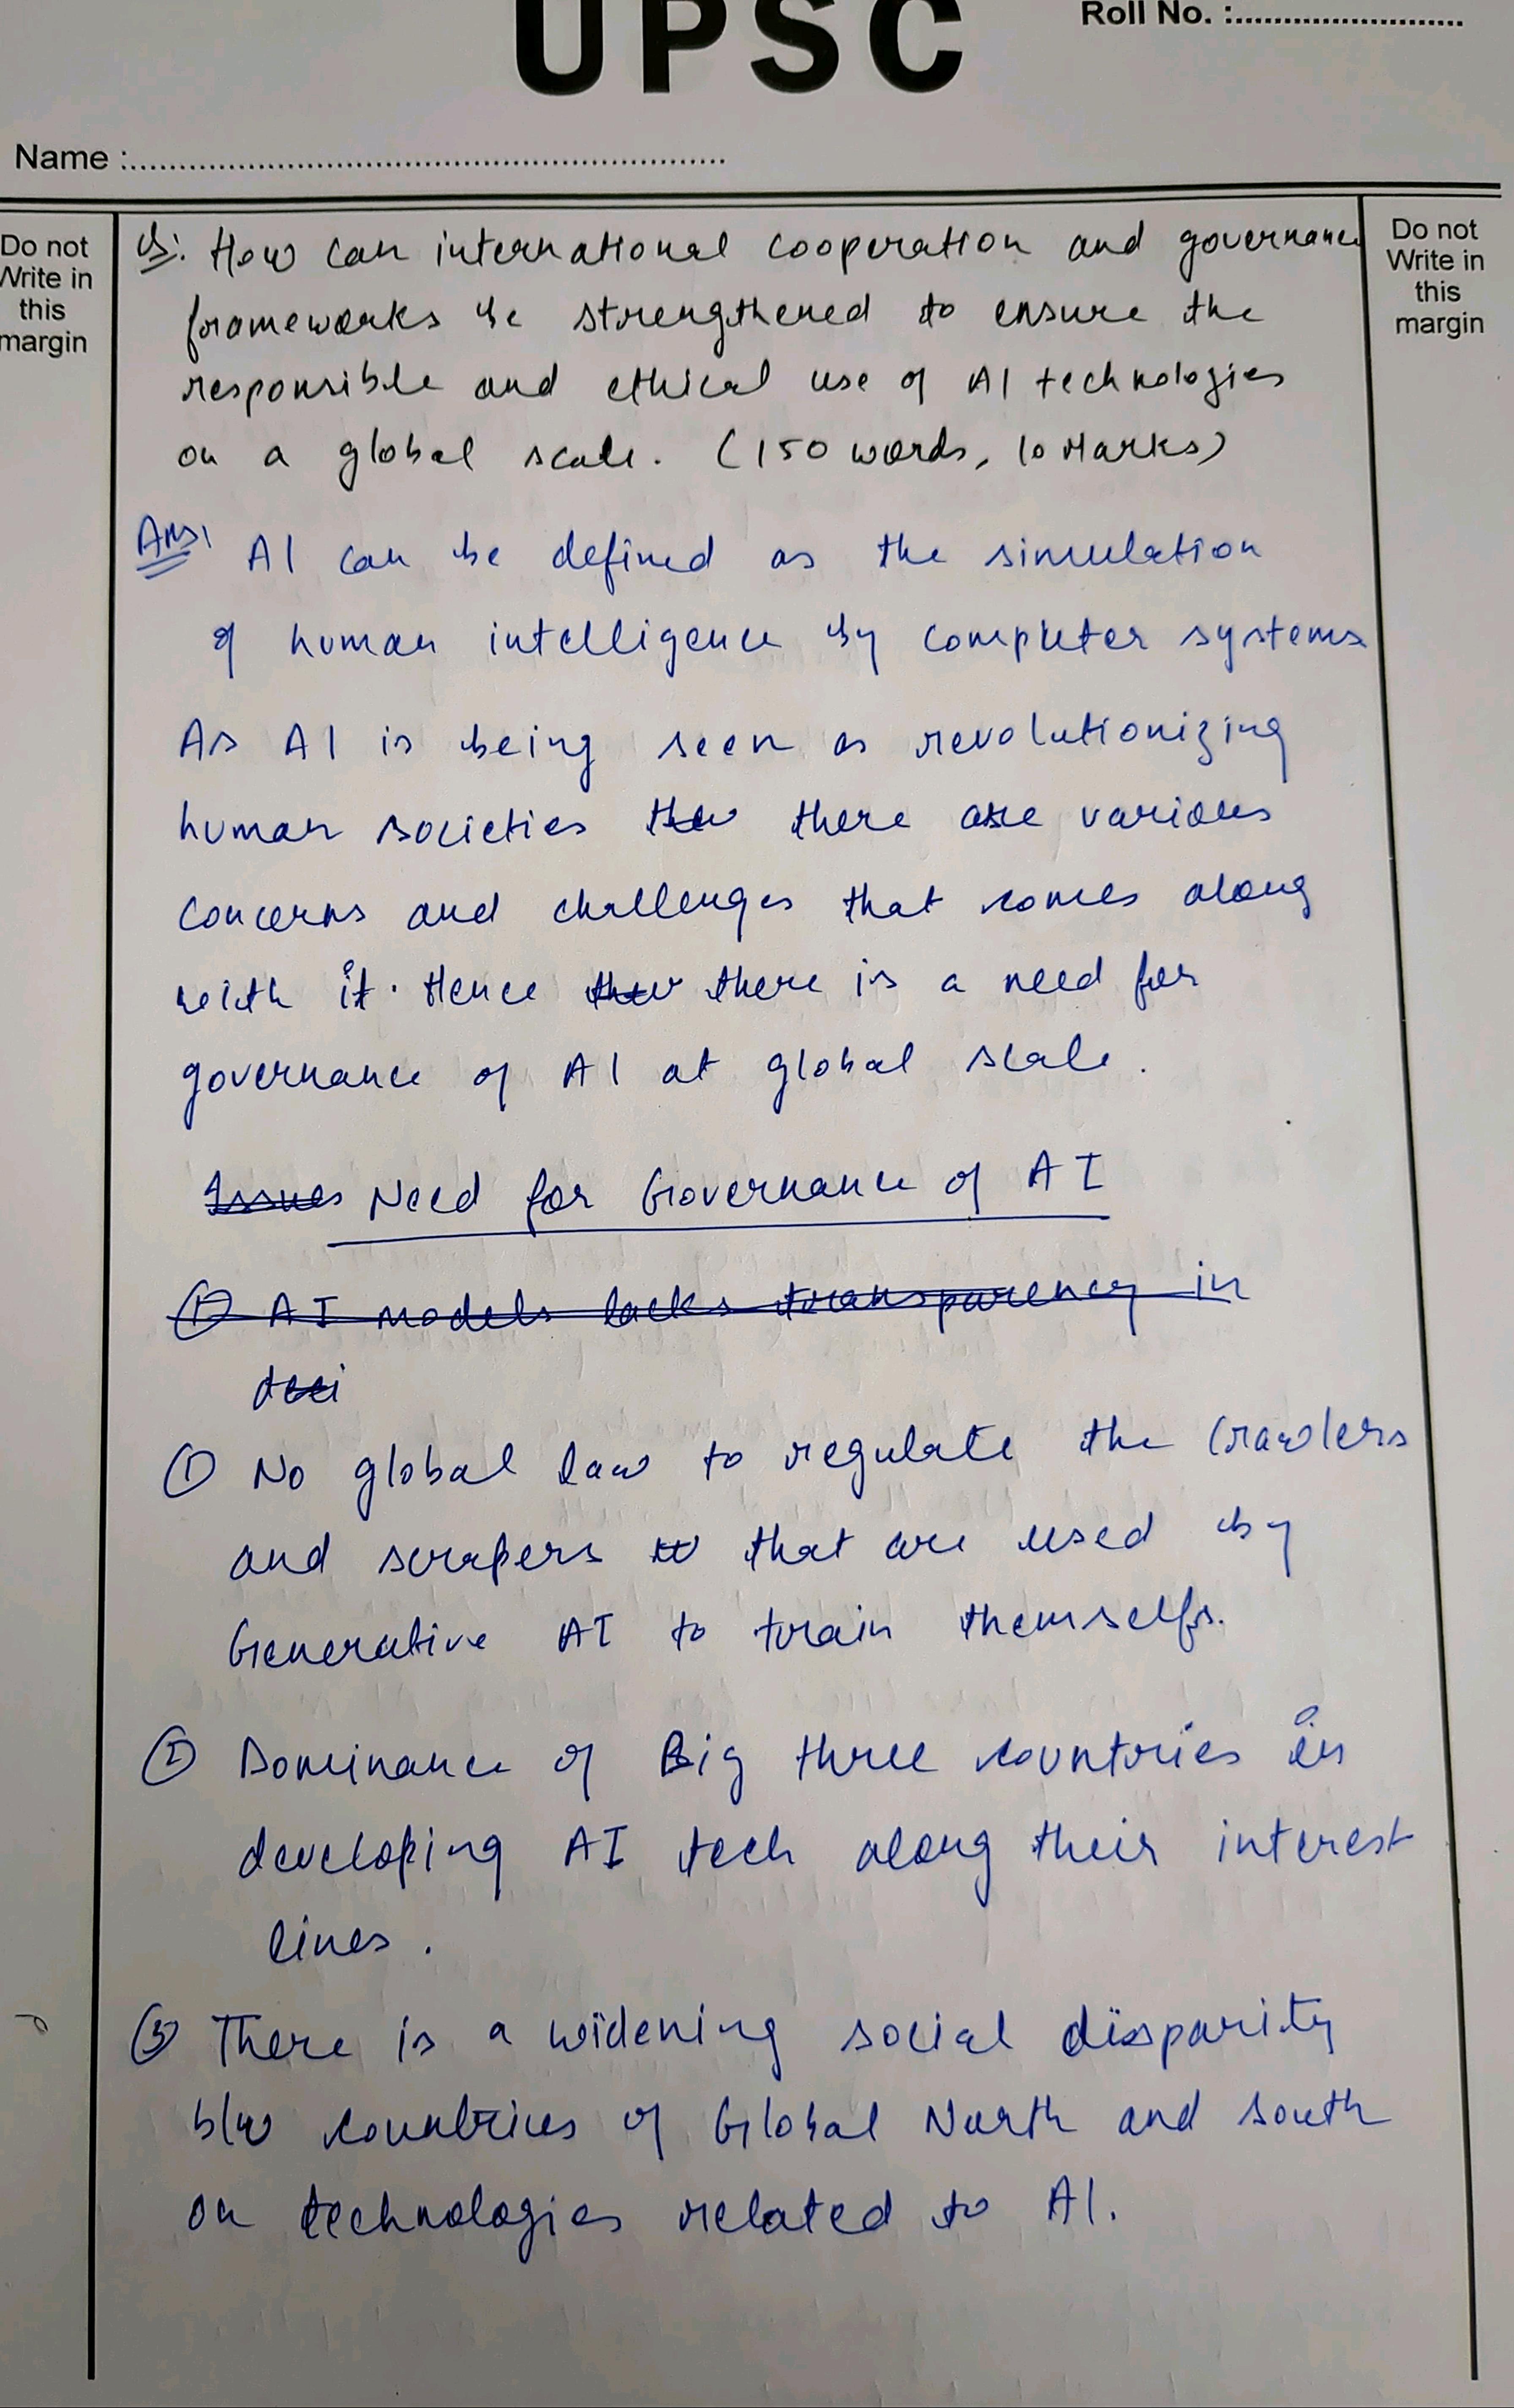 UPSC
Roll No. :........................
Name :............................................................
Do not
Write in
this
margin
Do not
Write in
this
margin
Q: How can international cooperation and governance
frameworks be strengthened to ensure the
responsible and ethical use of AI technologies
on a global scale. (150 words, 10 Marks)
Ans: AI can be defined as the simulation
of human intelligence by computer systems
As AI is being seen as revolutionizing
human societies there are various
concerns and challenges that comes along
with it. Hence there is a need for
governance of AI at global scale.
Issues Need for Governance of AI
① AI models lacks transparency in
deci
① No global law to regulate the Crawlers
and scrapers that are used by
Generative AI to train themselfs.
② Dominance of Big three countries in
developing AI tech along their interest
lines.
③ There is a widening social disparity
b/w countries of Global North and south
on technologies related to AI.